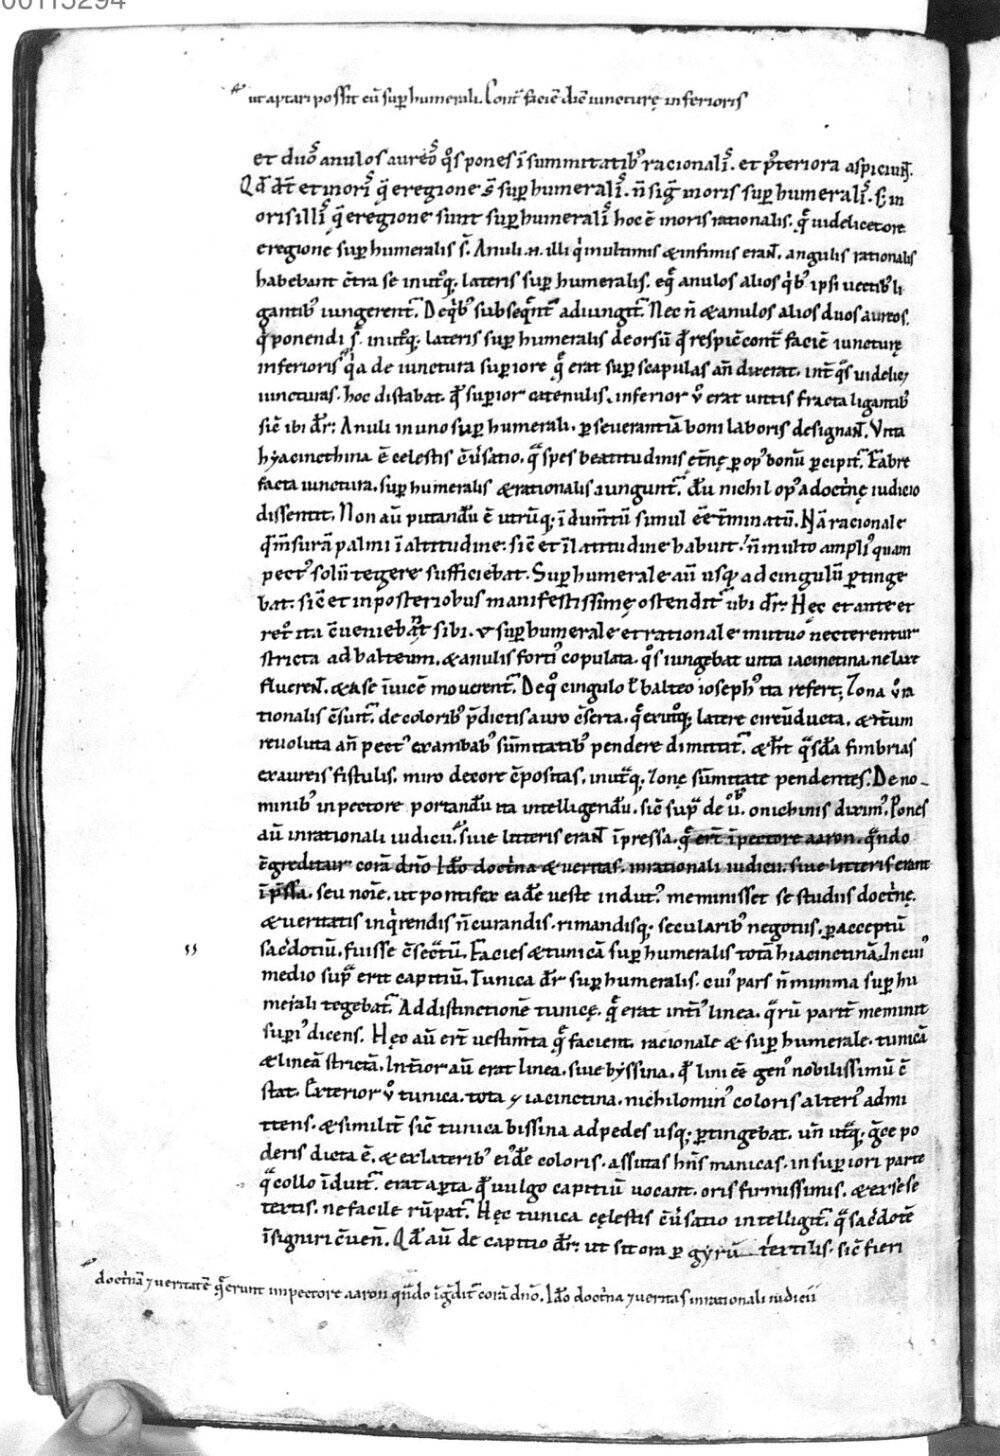 00115294
ut aptari possit cū sup humerali. Contͣ faciē dīe iuncturę inferioris
et duoˢ anulos aureoˢ qͦs pones ī summitatibꝰ racionalīˢ. et pͦteriora aspiciunt.
Qd̄ dt̄ et in orīˢ q̄ e regione s̄ sup humeralīˢ. n̄ sigͭ in oris sup humeralīˢ. s; in
oris illīˢ q̄ e regione sunt sup humeralīˢ hoc ē in oris rationalis. q̄ uidelicet ore
e regione sup humeralis s̄. Anuli .n. illi qͥ in ultimis & infimis erant. angulis rationalis
habebant c̄tra se in utͦq; lateris sup humeralis. eq̄ anulos alios qͥbꝰ ipsi uectibꝰ li
gantibꝰ iungerentᷣ. De qͥbꝰ subseqn̄tᷣ adiungitᷣ. Nec n̄ & anulos alios duos aureos.
qͥ ponendi s̄. in utͦq; lateris sup humeralis deorsū qͩ respic̄ contͣ faciē iuncturę
inferiorisˢ qͥa de iunctura superiore q̄ erat sup scapulas an̄ dixerat. int̄ qͣs uidelic;
iuncturas. hoc distabat. qͩ superior catenulis. inferior v̊ erat uittis fracta ligantibꝰ
sic̄ ibi dr̄: Anuli in uno sup humerali. perseuerantiā boni laboris designant. Vita
hyacincthina ē celestis c̄uˢatio. qͣ spes beatitudinis ęt̄nę ꝑ opꝰ bonū ꝑcipitᷣ. Fabre
facta iunctura. sup humeralis & rationalis iunguntᷣ. dū nichil opꝰ a doct̄nę iudicio
dissentit. Non aū putandū ē utrūq; ī dum̄tū simul ēē t̄minatū. Nā racionale
qͥ m̄surā palmi ī altitudine: sic̄ et ī latitudine habuit. n̄ multo ampliꝰ quam
pectꝰ solū tegere sufficiebat. Sup humerale aū usq; ad cingulū ꝑtinge
bat. sic̄ et in posterioribus manifestissimę ostenditᷣ ubi dr̄: Hęc et ante et
ret̊ ita c̄ueniebant sibi. ut sup humerale et rationale mutuo necterentur
stricta ad balteum. & anulis fortiꝰ copulata. qͦs iungebat uitta iacinctina. ne laxe
fluerent. & a se īuicē mouerentᷣ. De qͦ cingulo ł balteo iosephꝰ ita refert; Zona v̊ ra
tionalis c̄suitᷣ. de coloribꝰ p̄dictis auro c̄serta. q̄ ex utͦq; latere circūducta. & it̄um
reuoluta an̄ pectꝰ ex ambabꝰ sūmitatibꝰ pendere dimittitᷣ. & h̄t qͣsdā fimbrias
ex aureis fistulis. miro decore c̄positas. in utͣq; zonę sūmitate pendentes. De no-
minibꝰ in pectore portandū ita intelligendū. sic̄ supͣ de uͦbꝰ. onichinis diximꝰ. Pones
aū in rationali iudicii. siue litteris erant īpressa. q̄ ert̄ ī pectore aaron. qͣndo
īgreditur corā dn̄o Id̄o doct̄na & ueritas. in rationali iudicii. siue litteris erant
īpssa. seu noīe. ut pontifex eadē ueste indutꝰ. meminisset se studiis doct̄nę.
& ueritatis inqͥrendis n̄ curandis. rimandisq; secularibꝰ negotiis. ꝑ acceptū
sacͦdotiū. fuisse c̄sec̄tū. Facies & tunicā sup humeralis totā hiacinctinā. In cuiꝰ
medio supͣ erit capitiū. Tunica dr̄ sup humeralis. cuiꝰ pars n̄ minima sup hu
merali tegebatᷣ. Ad distinctionē tunicę. q̄ erat int̄iꝰ linea. qͣrū partē meminit
superiꝰ dicens. Hęc aū ert̄ uestim̄ta q̄ facient. racionale & sup humerale. tunicā
& lineā strictā. Int̄ior aū erat linea. siue byssina. qͩ lini ēē genꝰ nobilissimū c̄
stat. Exterior v̊ tunica. tota ÷ iacinctina. nichilominꝰ coloris alteriꝰ admi
ttens. & similit̄ sic̄ tunica bissina ad pedes usq; ꝑtingebat. un̄ utͣq; gͣce po
deris dicta ē. & ex lateribꝰ eiꝰdē coloris. assutas hn̄s manicas. in superiori parte
qͣ collo īduitᷣ. erat aꝑta. qͩ uulgo capitiū uocant. oris firmissimis. & ex se se
textis. ne facile rūpatᷣ. Hęc tunica cęlestis c̄uˢatio intelligitᷣ. qͣ sacͦdotē
īsigniri c̄uen̄. Qd̄ aū de capitio dr̄. ut sit ora ꝑ gyrū textilis. sic̄ fieri
doct̄nā ⁊ ueritatē q̄ erunt in pectore aaron qn̄do īgͣditᷣ corā dn̄o. Id̄o doct̄na ⁊ ueritas in rationali iudicii